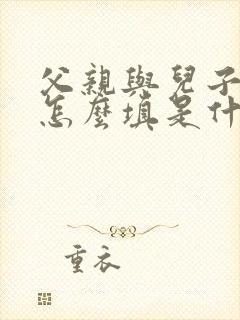 父親與兒子
怎麼填是什
重衣